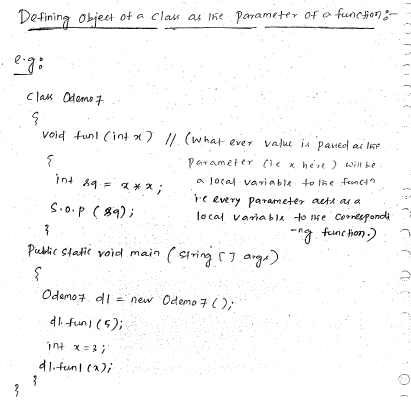 Defining object of a class as the parameter of a function:-
e.g:
Class Odemo7
{
void fun1 (int x) // (what ever value is passed as the
{ parameter (ie x here) will be
int sq = x * x; a local variable to the functn
S.O.P (sq); i.e every parameter acts as a
} local variable to the correspondi
-ng function.)
Public static void main (string [] args)
{
Odemo7 d1 = new Odemo7 ();
d1.fun1 (5);
int x = 3;
d1.fun1 (x);
}
}